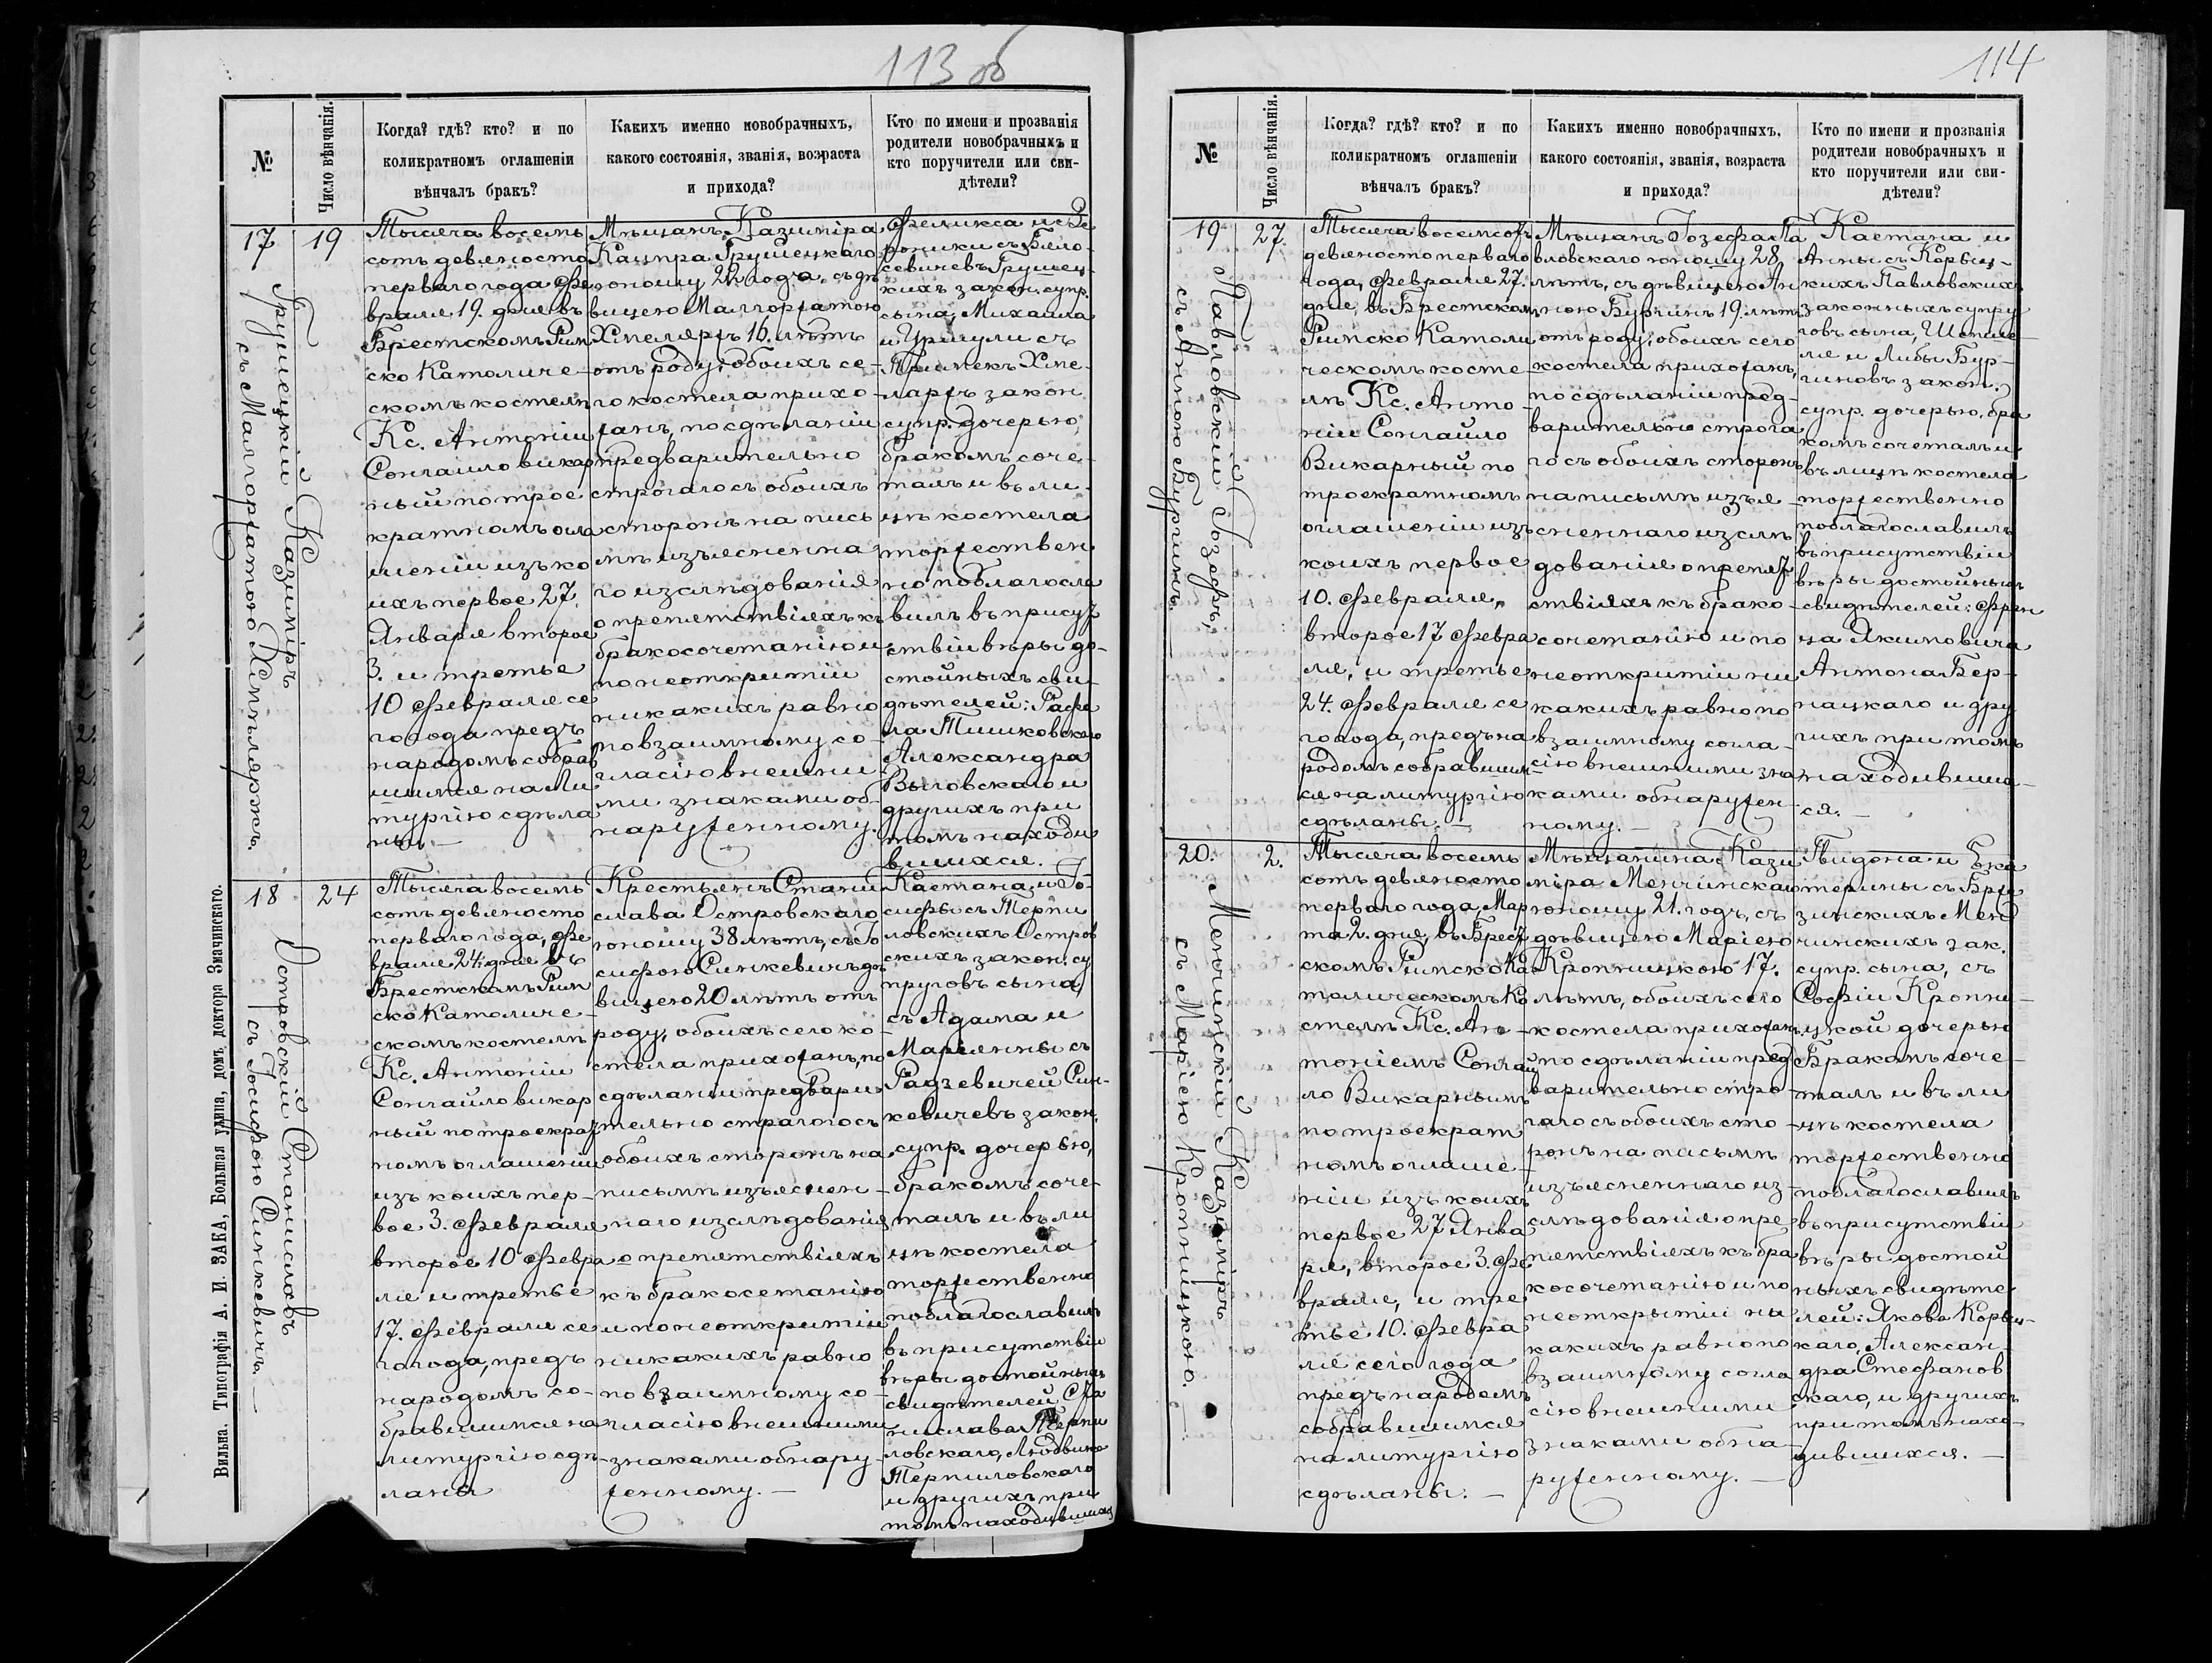 113 об
№
Число вѣнчанія.
Когда? гдѣ? кто? и по
коликратномъ оглашеніи
вѣнчалъ бракъ?
Какихъ именно новобрачныхъ,
какого состоянія, званія, возраста
и прихода?
Кто по имени и прозванія
родители новобрачныхъ и
кто поручители или сви-
дѣтели?
17
19
Грушецкій Казиміръ
съ Малгоржатою Хмѣляржъ.
Тысяча восемь
сотъ девяносто
перваго года Фе
враля 19. дня въ
Брестскомъ Рим
ско Католиче-
скомъ костелѣ
Кс. Антоній
Сонгайло викар
ный по трое
кратномъ огла
шеніи изъ ко
ихъ первое 27.
Января второе
3. и третье
10 Февраля се
го года предъ
народомъ собрав
шимся на Ли
тургію сдѣла
ны.—
Мѣщанъ Казиміра
Каспра Грушецкаго
юношу 22 года, съ дѣ
вицею Малгоржатою
Хмелярѫ 16. лѣтъ
отъ роду, обоихъ се-
го костела прихо-
жанъ, по сдѣланіи
предварительно
строгаго съ обоихъ
сторонъ на пись
мѣ изъясненна
го изслѣдованія
о препятствіяхъ къ
бракосочетанію и
по неоткритіи
никакихъ равно
по взаимному со-
гласію внешни
ми знаками об-
наруженному.
Феликса и Ве
роники съ Бело-
севичевъ Грушец-
кихъ закон. супр.
сына, Михаила
и Уршули съ
Примекъ Хме-
ларжъ закон.
супр. дочерью,
бракомъ соче-
талъ и въ ли-
цѣ костела
торжествен
но поблагосла
вилъ въ присут
ствіи вѣры до-
стойныхъ сви-
дѣтелей: Рафа
ла Тишковскаго
Александра
Выговскаго и
другихъ при
томъ находи
вшихся.
18
24
Островскій Станиславъ
съ Госифою Синкевичъ.—
Тысяча восемь
сотъ девяносто
перваго года, Фе
враля 24. дня въ
Брестскомъ Рим
ско Католиче-
скомъ костелѣ
Кс. Антоній
Сонгайло викар
ный по троекрат
номъ оглашеніи
изъ коихъ пер-
вое 3. Февраля
второе 10 Февра
ля и третье
17. Февраля се
го года, предъ
народомъ со-
бравшимся на
литургію сдѣ-
ланы
Крестьянъ Стани
слава Островскаго
юношу 38 лѣтъ, съ Го
сифою Синкевичъ дѣ
вицею 20 лѣтъ отъ
роду, обоихъ сего ко-
стела прихожанъ, по
сдѣланіи предвари
тельно страгого съ
обоихъ сторонъ на
письмѣ изъяснен-
наго изслѣдованія
о препятствіяхъ
къ бракосетанію
и по неоткритіи
никакихъ равно
по взаимному со-
гласію внешними
знаками обнару-
женному.—
Каетана и Го-
сифы съ Терпи
ловскихъ Остров
скихъ закон. су
пруговъ сына,
съ Адама и
Маріянны съ
Радзевичей Син-
кевичевъ закон.
супр. дочерью,
бракомъ соче-
талъ и въ ли
цѣ костела
торжественно
поблагославилъ
въ присутствіи
вѣры достойныхъ
свидѣтелей Ста
нислава Терпи
ловскаго, Людвика
Терпиловскаго
и другихъ при
томъ находившихся
Вильна. Типографія А. И. ЗАКА, Большая улица, домъ доктора Значинскаго.
114
№
Число вѣнчанія.
Когда? гдѣ? кто? и по
коликратномъ оглашеніи
вѣнчалъ бракъ?
Какихъ именно новобрачныхъ,
какого состоянія, званія, возраста
и прихода?
Кто по имени и прозванія
родители новобрачныхъ и
кто поручители или сви-
дѣтели?
19
27.
Павловскій Іозефъ,
съ Анною Бургинъ.
Тысяча восемсотъ
девяносто перваго
года, Февраля 27.
дня, въ Брестскомъ
Римско Католи
ческомъ косте
лѣ Кс. Анто-
ній Сонгайло
Викарный по
троекратномъ
оглашеніи изъ
коихъ первое
10. Февраля,
второе 17 Февра
ля, и третье
24. Февраля се
го года, предъ на
родомъ собравшим-
ся на литургію
сдѣланы.—
Мѣщанъ Іозефа Па
вловскаго юношу 28
лѣтъ, съ дѣвицею Ан
ною Бургинъ 19. лѣтъ
отъ роду, обоихъ сего
костела прихожанъ,
по сдѣланіи пред-
варительно строга
го съ обоихъ сторонъ
на письмѣ изъя-
сненнаго изслѣ
дованія о препят
ствіяхъ къ брако-
сочетанію и по
неоткритіи ни
какихъ равно по
взаимному согла-
сію внешними зна
ками обнаружен-
ному.—
Каетана и
Анны съ Корвец-
кихъ Павловскихъ
законныхъ супру
говъ сына,
ля и Либы Бур-
гиновъ закон.
супр. дочерью, бра
комъ сочеталъ и
въ лицѣ костела
торжественно
поблагославилъ
въ присутствіи
вѣры достойныхъ
свидѣтелей: Фран
ца Якимовича
Антона Бер-
нацкаго и дру
гихъ при томъ
находивших-
ся.—
20.
2.
Менчинскій Казиміръ
съ Маріею Кропницкою.—
Тысяча восемь
сотъ девяносто
перваго года, Мар
та 2. дня, въ Брест
скомъ Римско Ка
толическомъ Ко
стелѣ Кс. Ан-
тоніемъ Сонгай
ло Викарнымъ
по троекрат
номъ оглаше-
ніи изъ коихъ
первое 27 Янва
ря, второе 3. Фе
враля, и тре
тье 10. Февра
ля сего года
предъ народомъ
собравшимся
на литургію
сдѣланы.—
Мѣщанина Кази
міра Менчинскаго
юношу 21. годъ, съ
дѣвицею Маріею
Кропницкою 17.
лѣтъ, обоихъ сего
костела прихожанъ
по сдѣланіи пред
варительно стро-
гаго съ обоихъ сто-
ронъ на письмѣ
изъясненнаго из-
слѣдованія о пре
пятствіяхъ къ бра
косочетанію и по
неоткрытіи ни
какихъ равно по
взаимному согла
сію внешними
знаками обна-
руженному.—
Гвидона и Ека
терины съ Бру
зинскихъ Мен
чинскихъ зак.
супр. сына, съ
Софіи Кропни-
цкой дочерью
Бракомъ соче-
талъ и въ ли
цѣ костела
торжественно
поблагославилъ
въ присутствіи
вѣры достой
ныхъ свидѣте
лей: Якова Корвец-
каго, Алексан-
дра Стефанов
скаго, и другихъ
при томъ нахо-
дившихся.—